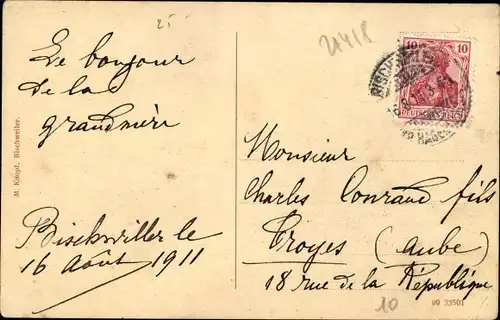 25
21418
Le bonjour
de la
grandmère
Bischwiller le
16 Août 1911
M. Knopf, Bischweiler.
10 10
DEUTSCHES REICH
Monsieur
Charles Conraud fils
Troyes (Aube)
18 rue de la République
10
09 33501